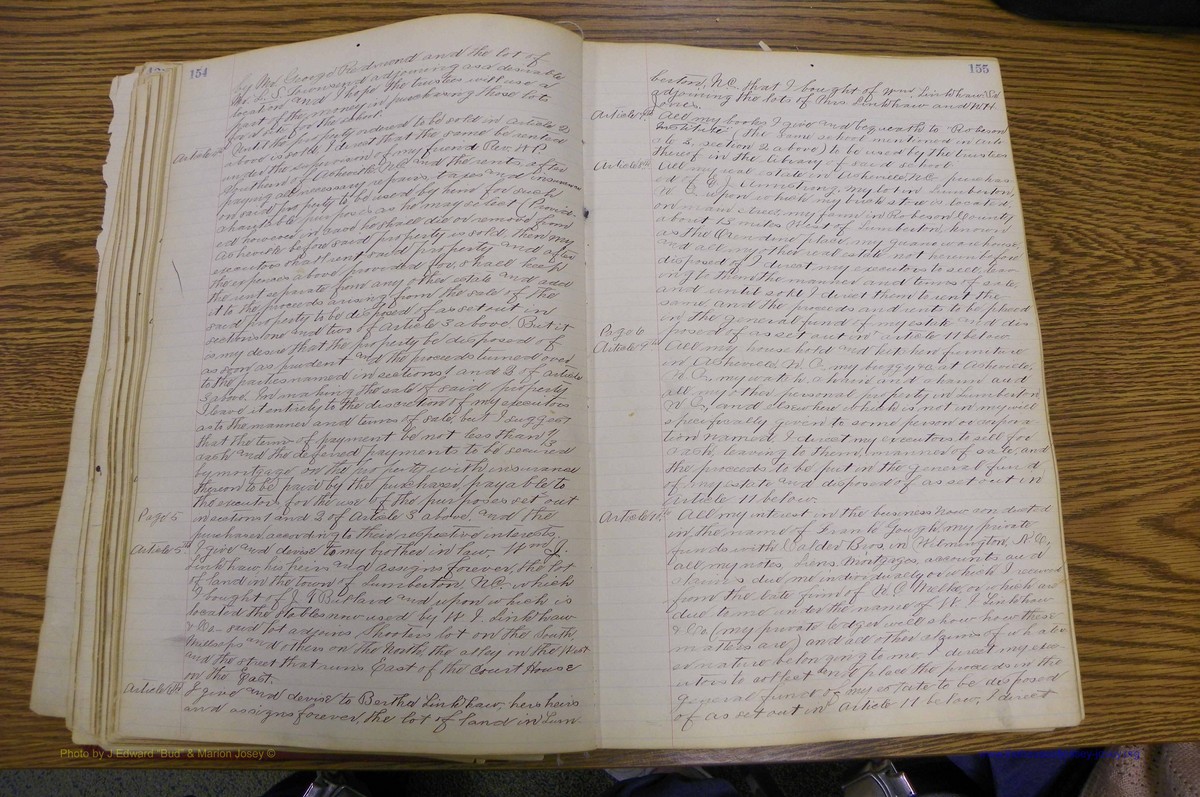 154
by Mr George Redmond and the lot of
Mr. L. S. Townsend adjoining as a desirable
location and I hope the trustees will use a
part of the money in purchasing these lots
for a site for the school.
Article 4th Until the property ordered to be sold in Article 3
above is sold, I direct that the same be rented
under the supervision of my friend Rev. W. P.
of Asheville, N.C. and the rents, after
paying all necessary repairs, taxes and insurance
on said property to be used by him for such
charitable purposes as he may select (Provid-
ed however, in case he shall die or remove from
Asheville before said property is sold, then my
executors shall rent said property and after
the expenses above provided for, shall keep
the rent separate from my other estate and add
it to the proceeds arising from the sale of the
said property to be disposed of as set out in
sections one and two of Article 3 above. But it
is my desire that the property be disposed of
as soon as prudent and the proceeds turned over
to the parties named in sections 1 and 2 of article
3 above. In making the sale of said property
I leave it entirely to the discretion of my executors
as to the manner and terms of sale, but I suggest
that the terms of payment be not less than 1/3
cash and the deferred payments to be secured
by mortgage on the property with insurance
thereon to be paid by the purchaser, payable to
the executors for the use of the purposes set out
Page 5 in sections 1 and 2 of Article 3 above, and the
purchaser according to their respective interests.
Article 5th I give and devise to my brother in law, Wm J.
Linkhaw, his heirs and assigns forever, the lot
of land in the town of Lumberton, N.C. which
I bought of J. T. Bullard and upon which is
located the stables now used by W. J. Linkhaw
& Co - said lot adjoins Shooters lot on the South,
Millsaps and others on the North, the alley in the West
and the street that runs East of the Court House
on the East.
Article 6th I give and devise to Bertha Linkhaw, her heirs
and assigns forever, the lot of land in Lum-
155
berton, N.C. that I bought of Wm Linkhaw &
adjoining the lots of Mrs Linkhaw and W. H.
Jones.
Article 7th All my books I give and bequeath to Robeson
Institute (the same school mentioned in arti-
cle 3, section 2 above) to be used by the trustees
thereof in the library of said school.
Article 8th All my real estate in Asheville, N.C. purchas-
ed of C. E. my lot in Lumberton,
N. C. upon which my brick store is located
on main street, my farm in Robeson County
about 13 miles West of Lumberton, known
as the place, my guano warehouse,
and all my other real estate not heretofore
disposed of, I direct my executors to sell, leav-
ing to them the manner and terms of sale,
and until sold I direct them to rent the
same, and the proceeds and rents to be placed
in the general fund of my estate and dis-
Page 6 posed of as set out in article 11 below.
Article 9th All my house hold and kitchen furniture
in Asheville, N. C., my buggy &c at Asheville,
N. C., my watch & chain and charm and
all my other personal property in Lumberton
N. C., and elsewhere which is not in my will
specifically given to some person or corpora-
tion named, I direct my executors to sell for
cash, leaving to them, manner of sale, and
the proceeds to be put in the general fund
of my estate and disposed of as set out in
article 11 below.
Article 10th All my interest in the business now conducted
in the name of Frank Gough, my private
funds with Calder Bros. in Wilmington, N. C.,
all my notes, Liens, Mortgages, accounts and
claims due me individually or which I secured
from the late firm of or which are
due to me under the name of W. J. Linkhaw
& Co (my private ledger will show how these
matters are) and all other claims of whatev-
er nature belonging to me, I direct my exec-
utors to collect and place the proceeds in the
general fund of my estate to be disposed
of as set out in Article 11 below, I direct
Photo by J Edward "Bud" & Marion Josey ©